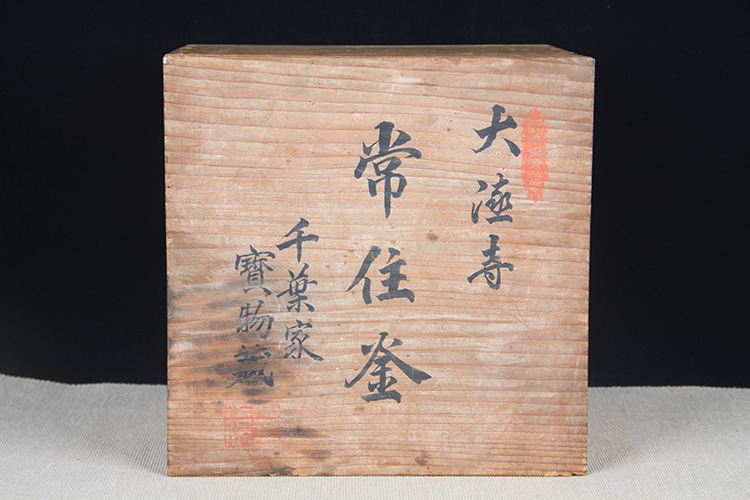 大寺
常住釜
千葉家
寶物蔵